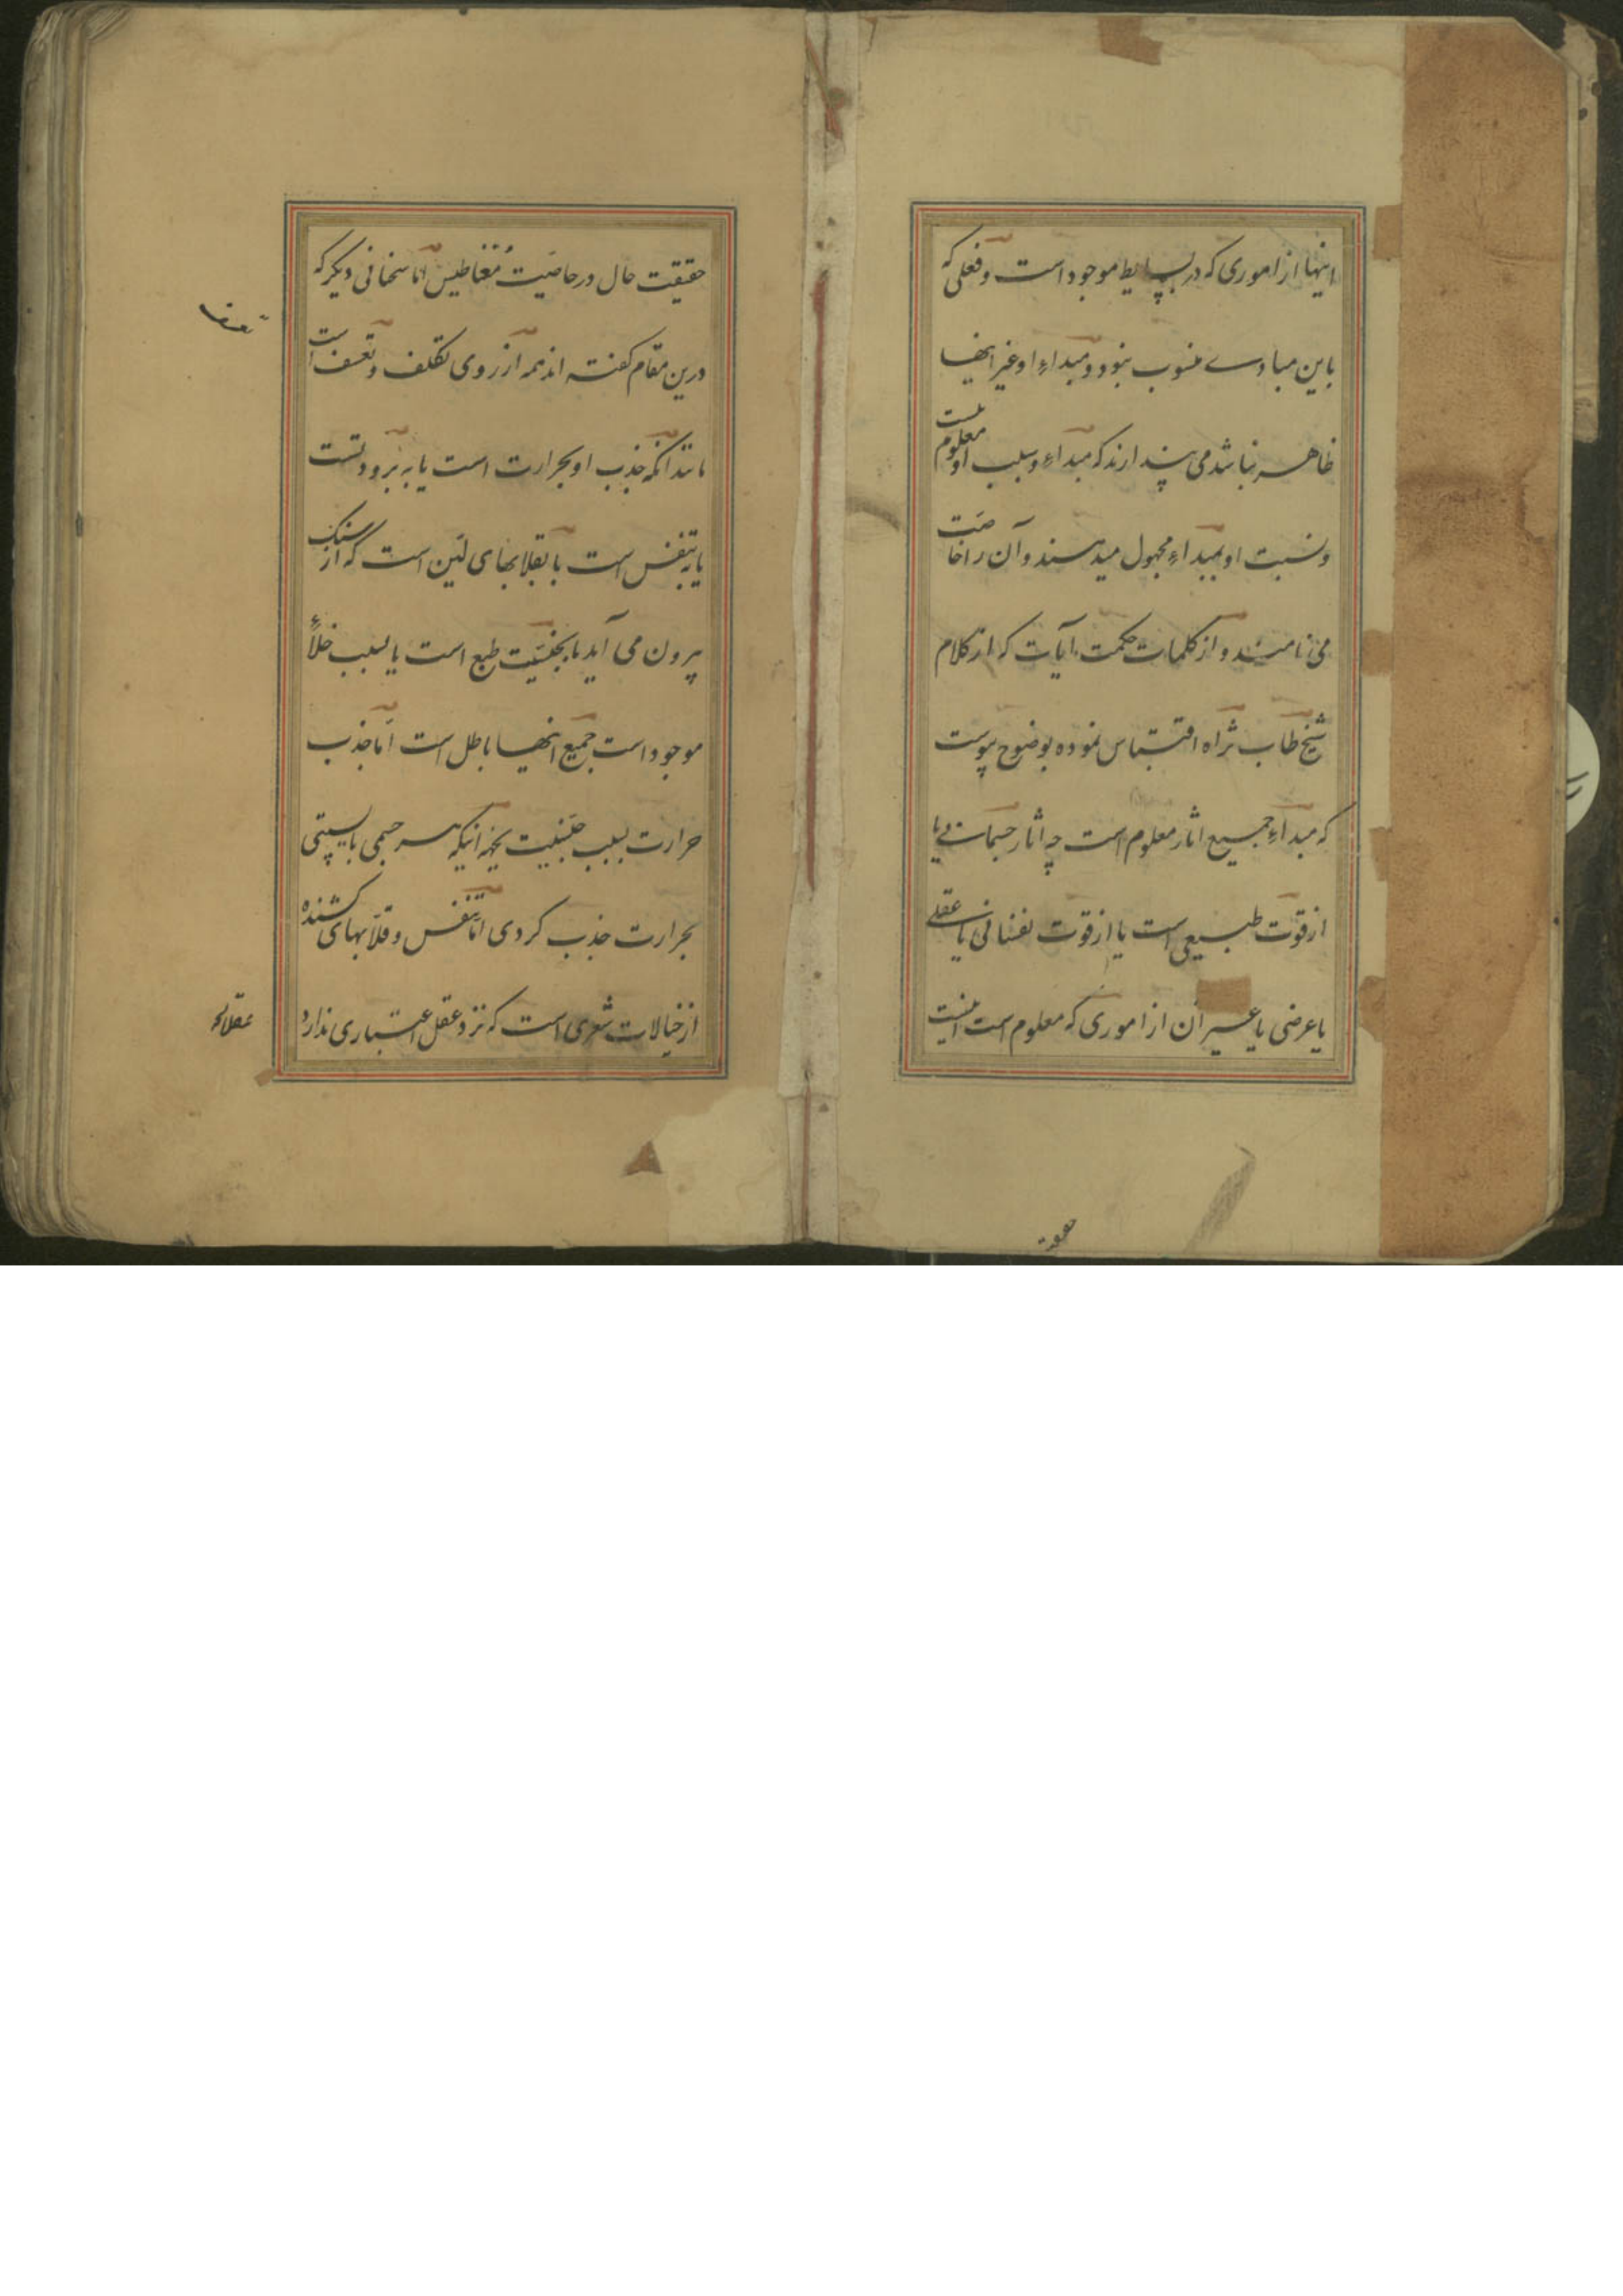 اینها از اموری که در بسایط موجود است و فعلی که
باین مبادے منسوب نبود و مبداءِ او غیر اینها
ظاهر نباشد می پندارند که مبداءِ و سبب او معلوم نیست
و نسبت او بمبداءِ مجهول میدهند و آن را خاصیت
می نامند و از کلمات حکمت آیات که از کلام
شیخ طاب ثراه اقتباس نموده بوضوح پیوست
که مبداءِ جمیع اثار معلوم است چه اثار جسمانی یا
از قوّت طبیعی است یا از قوّت نفسانی یا عقلے
یا عرضی یا غیر آن از اموری که معلوم است اینست
حقیقت حال در خاصیّت مُغناطیس امّا سخنانی دیگر که
درین مقام کفته اند همه از روی تکلّف و تعسّف است
مانند آنکه جذب او بحرارت است یا به برودتست
یا بتنفس است یا بقلابهای لین است که از سنک
بیرون می آید یا بجنسیّت طبع است یا بسبب خلأ
موجود است جمیع انها باطل است امّا جذب
حرارت بسبب جنسیت بجهة آنکه هر جسمی بایستی
بحرارت جذب کردی امّا تنفس و قلّابهای کشنده
از خیالات شعری است که نزد عقل اعتباری ندارد